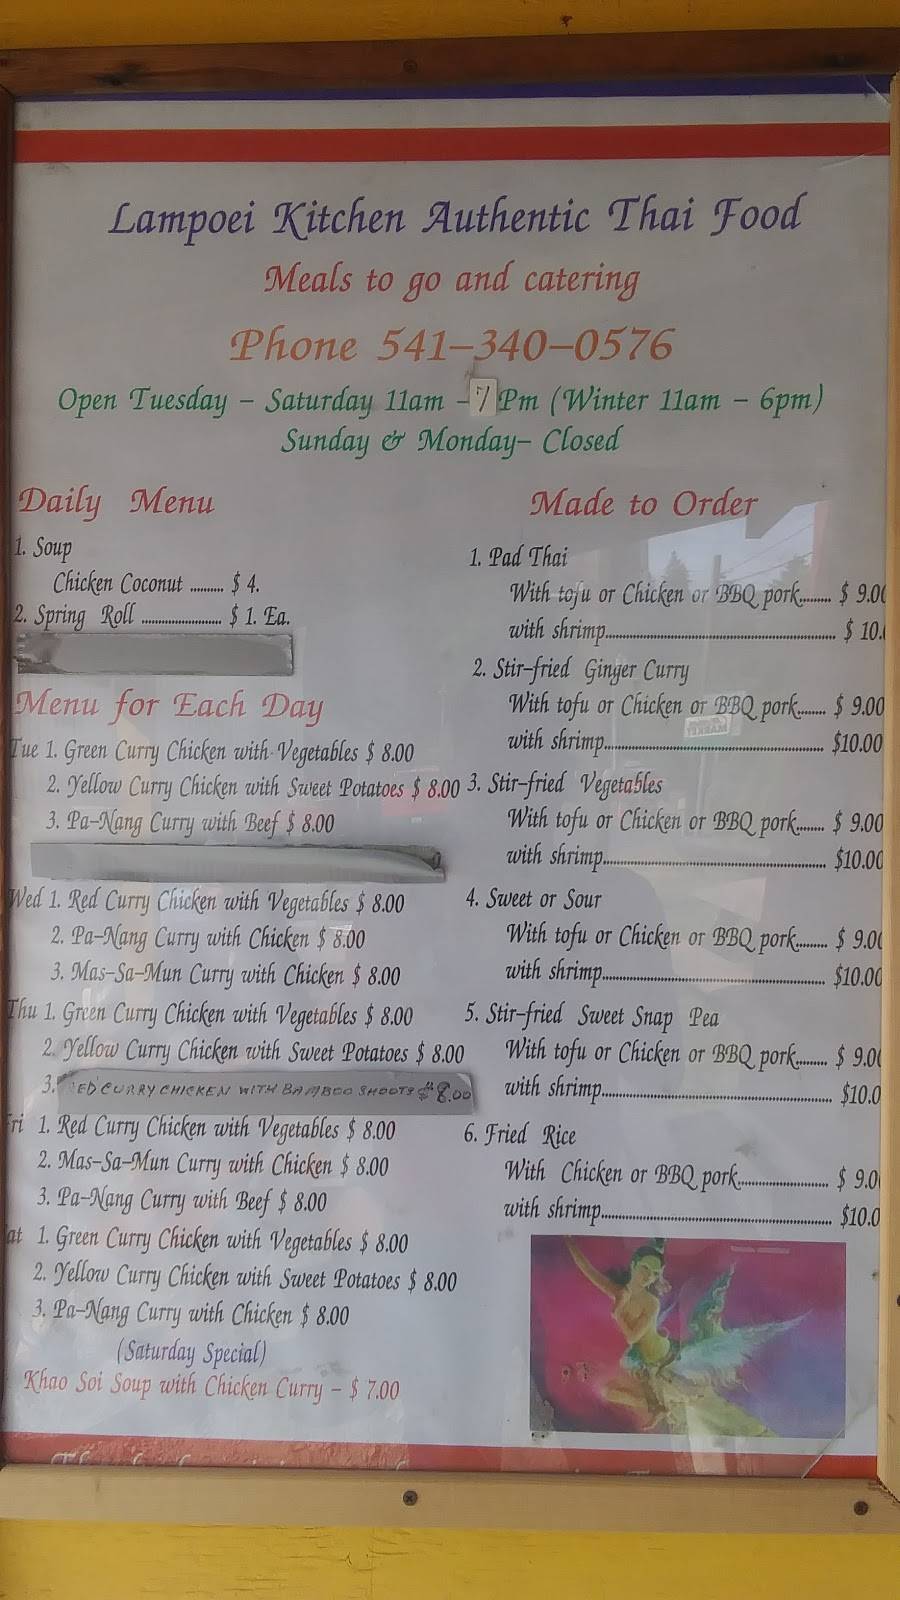 Lampoei Kitchen Authentic Thai Food
Meals to go and catering
Phone 541-340-0576
Open Tuesday - Saturday 11am - 7 Pm (Winter 11am - 6pm)
Sunday & Monday- Closed
Daily Menu
1. Soup
Chicken Coconut .......... $ 4.
2. Spring Roll ........................ $ 1. Ea.
Menu for Each Day
Tue 1. Green Curry Chicken with Vegetables $ 8.00
2. Yellow Curry Chicken with Sweet Potatoes $ 8.00
3. Pa-Nang Curry with Beef $ 8.00
Wed 1. Red Curry Chicken with Vegetables $ 8.00
2. Pa-Nang Curry with Chicken $ 8.00
3. Mas-Sa-Mun Curry with Chicken $ 8.00
Thu 1. Green Curry Chicken with Vegetables $ 8.00
2. Yellow Curry Chicken with Sweet Potatoes $ 8.00
3. ED CURRY CHICKEN WITH BAMBOO SHOOTS $8.00
Fri 1. Red Curry Chicken with Vegetables $ 8.00
2. Mas-Sa-Mun Curry with Chicken $ 8.00
3. Pa-Nang Curry with Beef $ 8.00
at 1. Green Curry Chicken with Vegetables $ 8.00
2. Yellow Curry Chicken with Sweet Potatoes $ 8.00
3. Pa-Nang Curry with Chicken $ 8.00
(Saturday Special)
Khao Soi Soup with Chicken Curry - $ 7.00
Made to Order
1. Pad Thai
With tofu or Chicken or BBQ pork......... $ 9.00
with shrimp............................................................ $ 10.
2. Stir-fried Ginger Curry
With tofu or Chicken or BBQ pork........ $ 9.00
with shrimp......................................................... $10.00
3. Stir-fried Vegetables
With tofu or Chicken or BBQ pork........ $ 9.00
with shrimp.......................................................... $10.00
4. Sweet or Sour
With tofu or Chicken or BBQ pork......... $ 9.00
with shrimp.......................................................... $10.00
5. Stir-fried Sweet Snap Pea
With tofu or Chicken or BBQ pork......... $ 9.00
with shrimp............................................................ $10.0
6. Fried Rice
With Chicken or BBQ pork......................... $ 9.0
with shrimp............................................................ $10.0